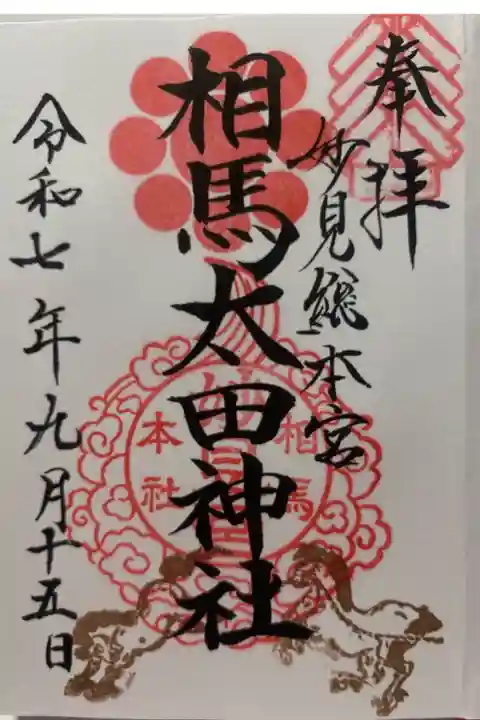 奉拝
妙見総本宮
相馬太田神社
相馬
本社
令和七年九月十五日